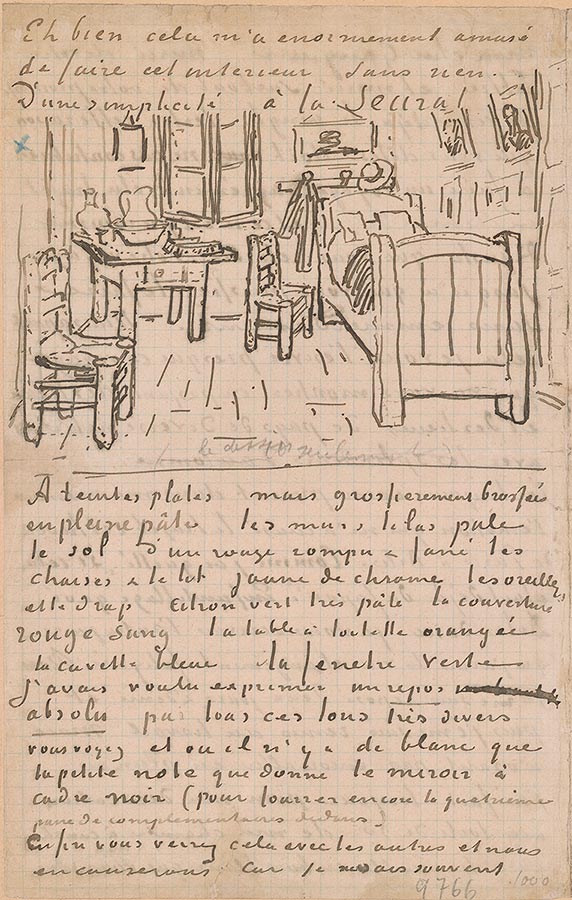 Eh bien cela m'a enormement amusé
de faire cet interieur sans rien.
D'une simplicité à la Seurat
le dessin seulement
A teintes plates mais grossierement brossées
en pleine pâte les murs lilas pale
le sol d'un rouge rompu & fané les
chaises & le lit jaune de chrome les oreillers
et le drap citron vert très pâle la couverture
rouge sang la table à toilette orangée
la cuvette bleue la fenetre verte
J'avais voulu exprimer un repos
absolu par tous ces tons très divers
vous voyez et ou il n'y a de blanc que
la petite note que donne le miroir à
cadre noir (pour fourrer encore la quatrieme
paire de complementaires dedans)
Enfin vous verrez cela avec les autres et nous
en causerons car je ne sais souvent
9766
1000